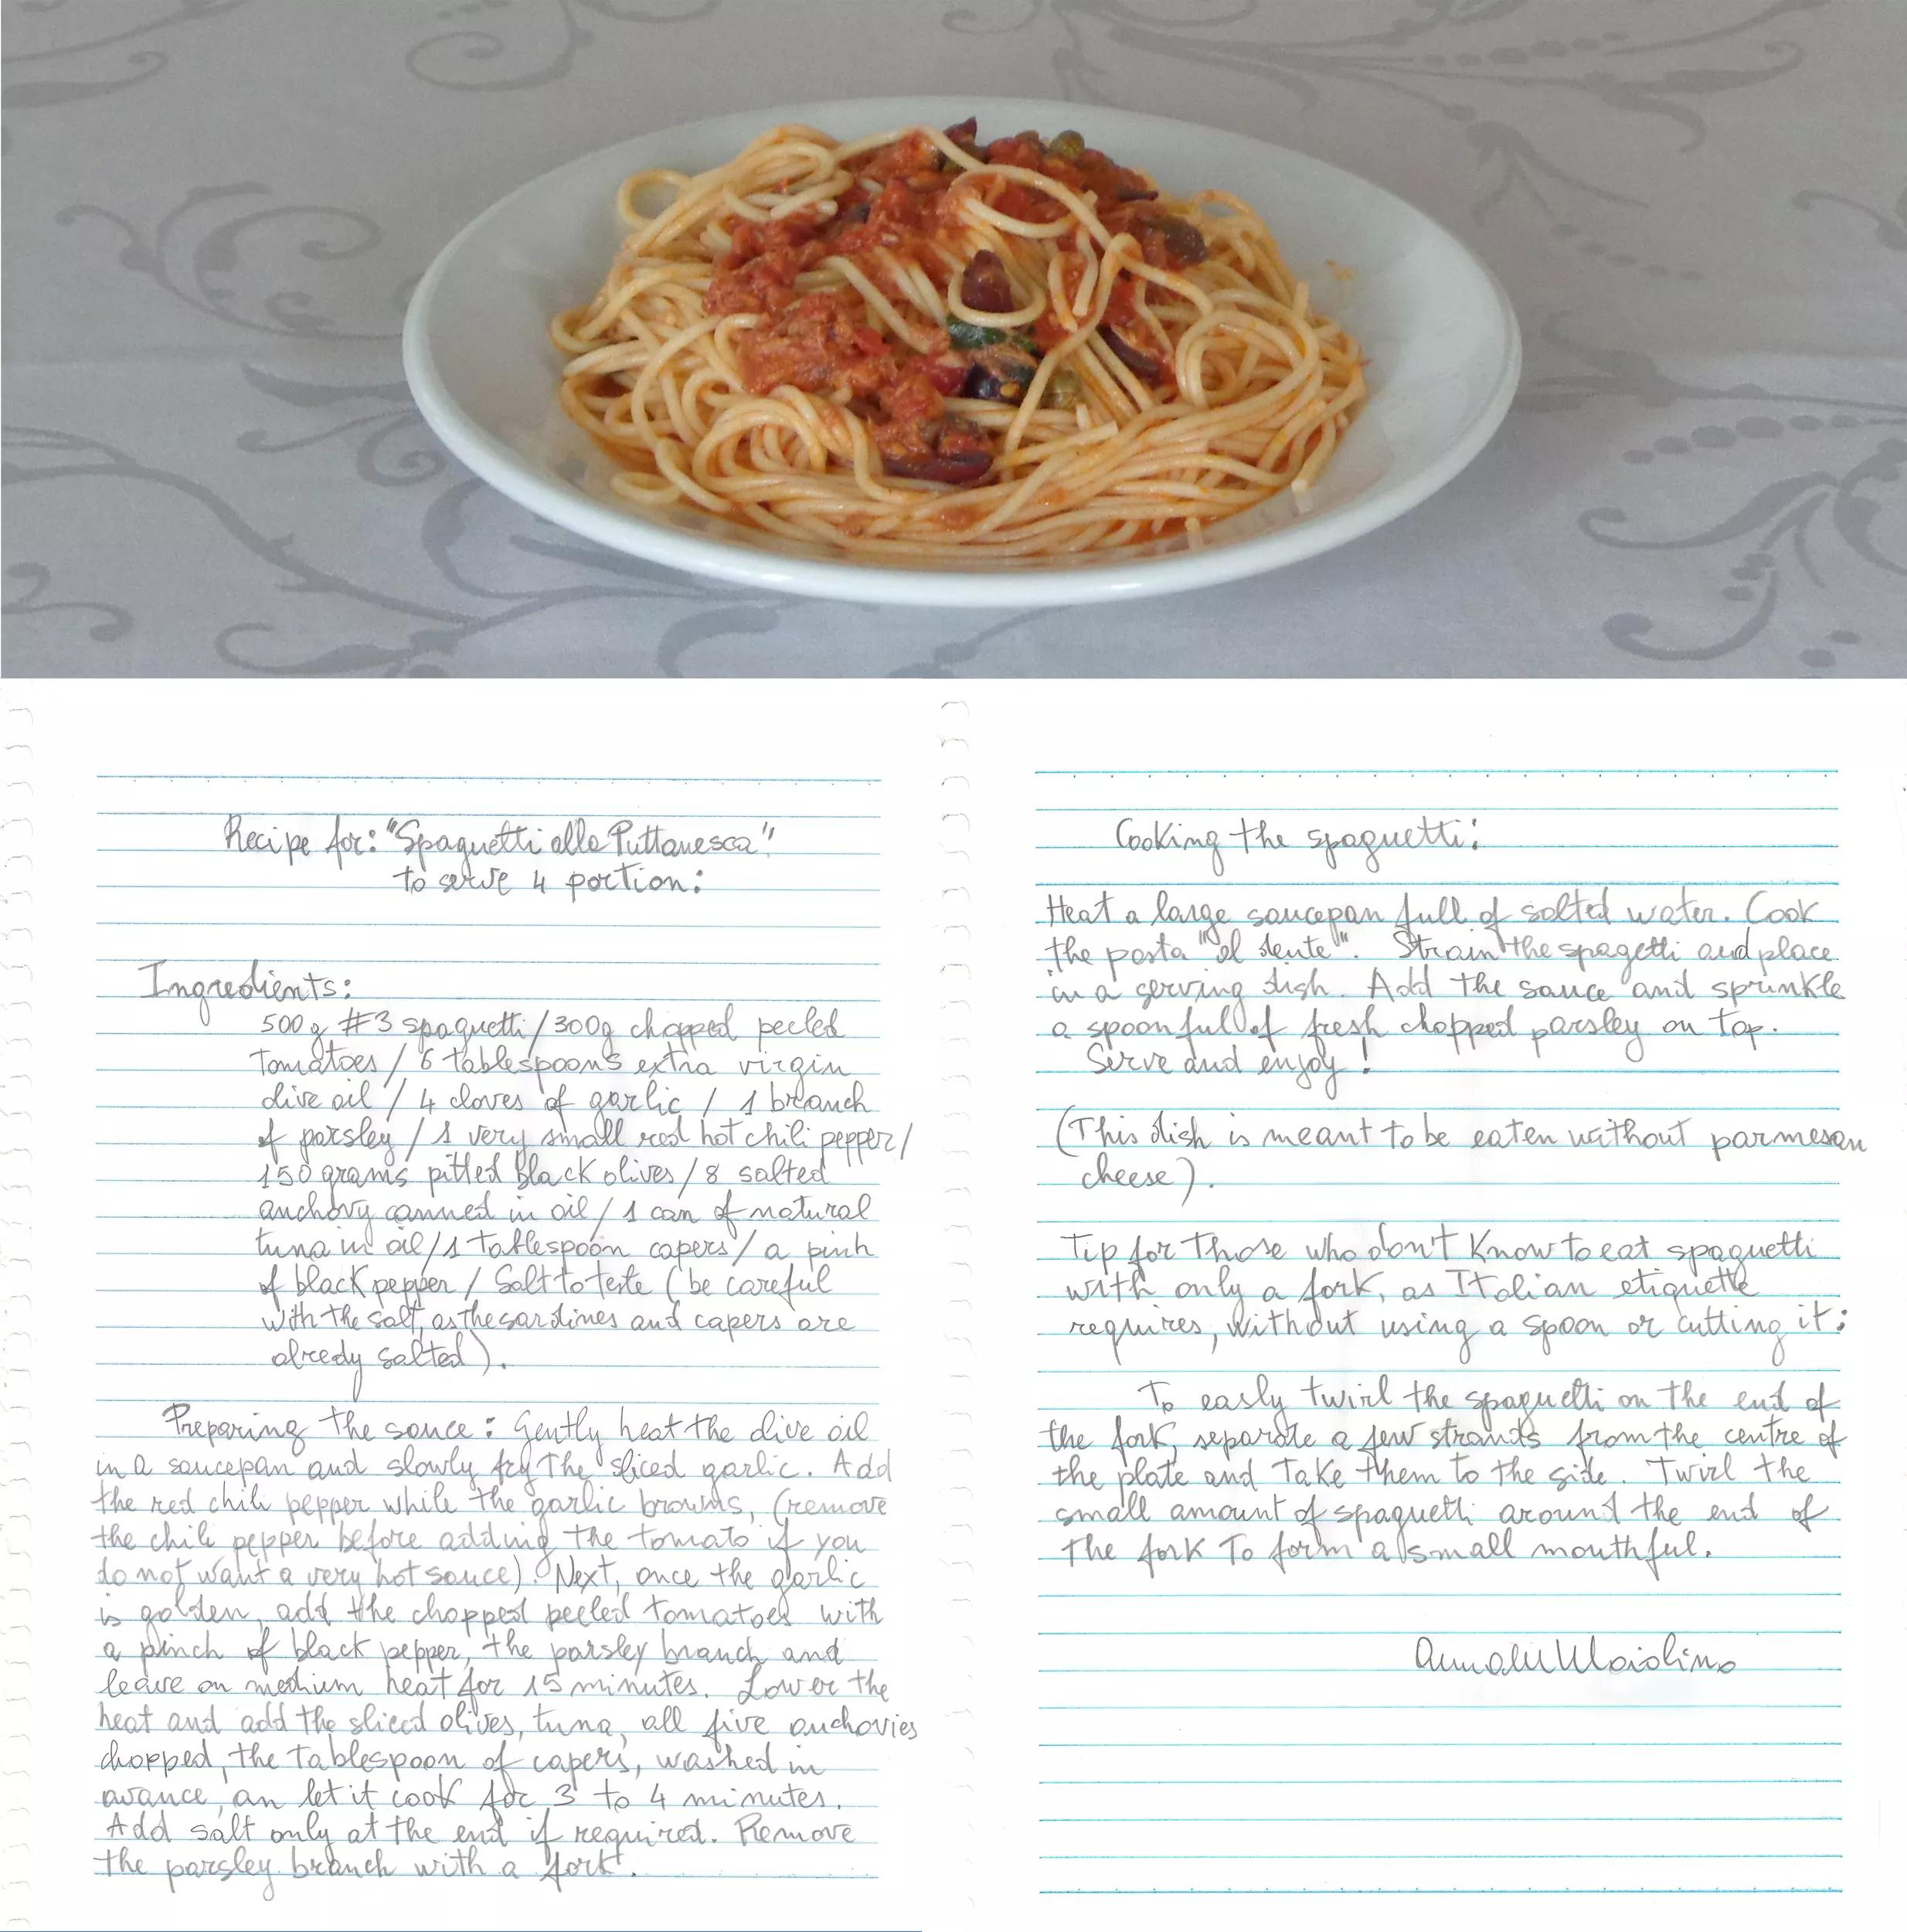 Recipe for: "Spaguetti alla Puttanesca"
to serve 4 portion:
Ingredients:
500g #3 spaguetti / 300g chopped peeled
tomatoes / 6 tablespoons extra virgin
olive oil / 4 cloves of garlic / 1 branch
of parsley / 1 very small red hot chili pepper /
150 grams pitted black olives / 8 salted
anchovy canned in oil / 1 can of natural
tuna in oil / 1 tablespoon capers / a pinh
of black pepper / Salt to teste (be careful
with the salt, as the sardines and capers are
alredy salted).
Preparing the sauce: Gently heat the olive oil
in a saucepan and slowly fry the sliced garlic. Add
the red chili pepper while the garlic browns, (remove
the chili pepper before adding the tomato if you
do not want a very hot sauce). Next, once the garlic
is golden, add the chopped peeled tomatoes with
a pinch of black pepper, the parsley branch and
leave on medium heat for 15 minutes. Lower the
heat and add the sliced olives, tuna, all five anchovies
chopped, the tablespoon of capers, washed in
avance, an let it cook for 3 to 4 minutes.
Add salt only at the end if required. Remove
the parsley branch with a fork.
Cooking the spaguetti:
Heat a large saucepan full of salted water. Cook
the pasta "al dente". Strain the spagetti and place
in a serving dish. Add the sauce and sprinkle
a spoonful of fresh chopped parsley on top.
Serve and enjoy!
(This dish is meant to be eaten without parmesan
cheese).
Tip for those who don't Know to eat spaguetti
with only a fork, as Italian etiquette
requires, without using a spoon or cutting it:
To easly twirl the spaguetti on the end of
the fork, separate a few strands from the centre of
the plate and take them to the side. Twirl the
small amount of spaguetti around the end of
the fork to form a small mouthful.